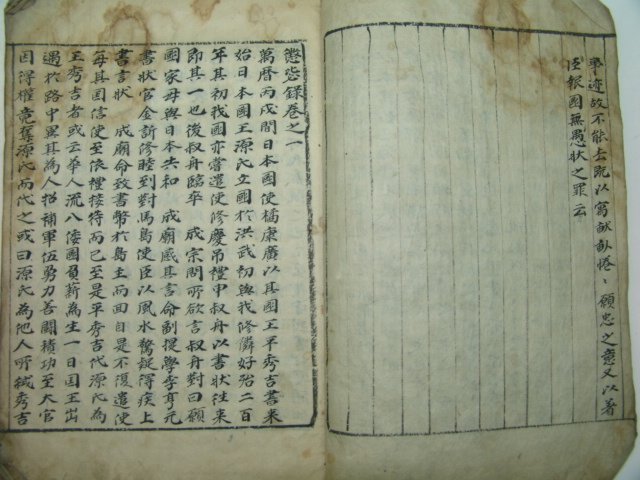 事迹故不能去旣以寓畎畝惓〻願忠之意又以著
臣報國無愚狀之罪云
懲毖錄卷之一
萬曆丙戌間日本國使橘康廣以其國王平秀吉書來
始日本國王源氏立國於洪武初與我修隣好殆二百
年其初我國亦嘗遣使修慶吊禮申叔舟以書狀徃來
卽其一也後叔舟臨卒 成宗問所欲言叔舟對曰願
國家毋與日本失和 成廟感其言命副提學李亨元
書狀官金訢修睦到對馬島使臣以風水驚疑得疾上
書言狀 成廟命致書幣於島主而回自是不復遣使
每其國信使至依禮接待而已至是平秀吉代源氏為
王秀吉者或云華人流入倭國負薪為生一日國王出
遇於路中異其為人招補軍伍勇力善鬪積功至大官
因得權竟奪源氏而代之或曰源氏為他人所弑秀吉